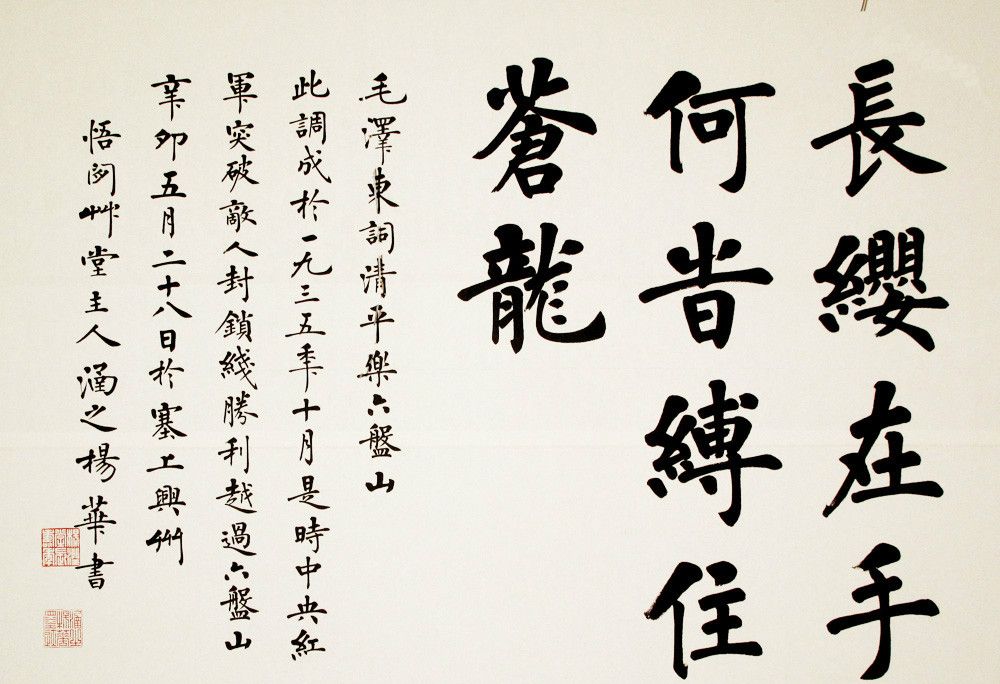 長纓在手
何旹縛住
蒼龍
毛澤東詞清平樂六盤山
此調成於一九三五秊十月是時中央紅
軍突破敵人封鎖綫勝利越過六盤山
辛卯五月二十八日於塞上興州
悟艸堂主人涵之楊華書